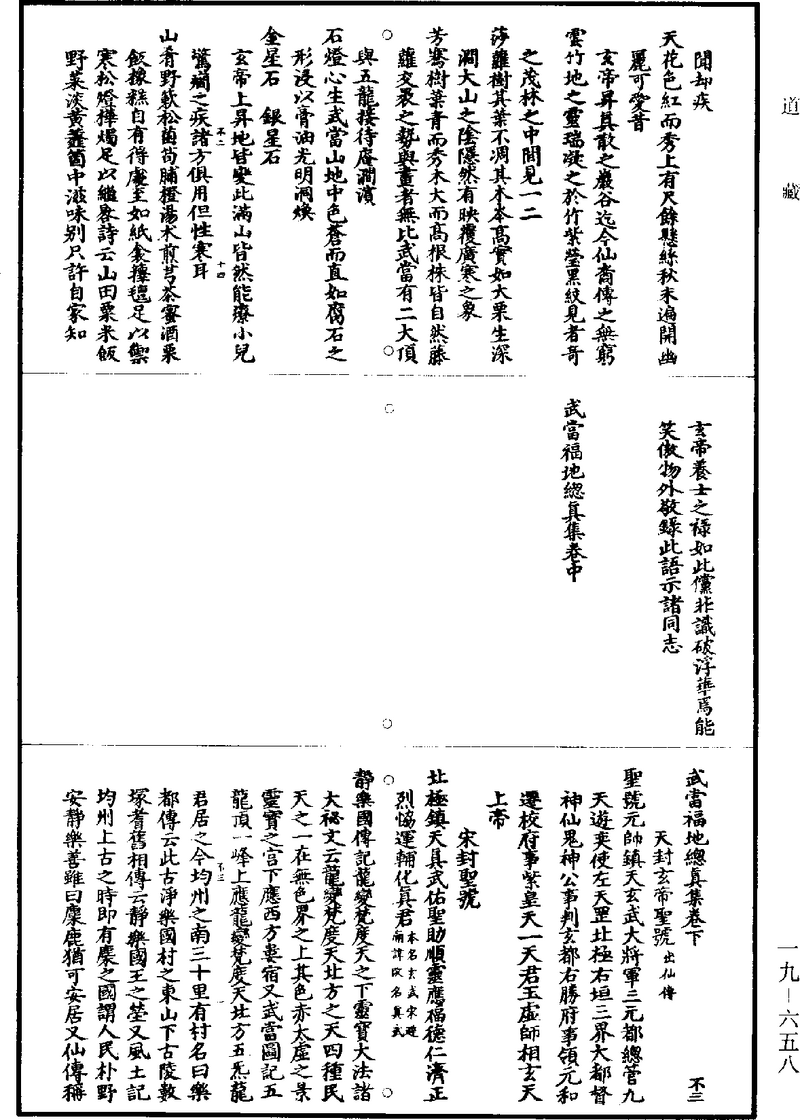 道藏
聞却疾
天花色紅而秀上有尺餘懸絲秋末遍開幽
麗可愛昔
玄帝昇其散之巖谷迄今仙裔傳之無窮
雲竹地之靈瑞凝之於竹紫瑩黑紋見者奇
之茂林之中間見一二
莎蘿樹其葉不凋其木本高實如大栗生深
澗大山之陰隱然有映覆廣寒之象
芳騫樹葉青而秀木大而高根株皆自然藤
蘿交裹之勢與畫者無比武當有二大頂
與五龍接待庵澗濱
石燈心生武當山地中色蒼而直如腐石之
形浸以膏油光明洞煥
金星石　銀星石
玄帝上昇地皆變此滿山皆然能療小兒
驚癇之疾諸方俱用但性寒耳
不二　十四
山肴野蔌松菌苟脯橙湯术煎芎茶蜜酒栗
飯橡糕自有得處至如紙衾擁毳足以禦
寒松燈樺燭足以繼晷詩云山田粟米飯
野菜淡黃虀箇中滋味别只許自家知
玄帝養士之禄如此儻非識破浮華焉能
笑傲物外敬錄此語示諸同志
武當福地總真集卷中
武當福地總真集卷下
不三
天封玄帝聖號出仙傳
聖號元帥鎮天玄武大將軍三元都總管九
天遊奕使左天罡北極右垣三界大都督
神仙鬼神公事判玄都右勝府事領元和
遷校府事紫皇天一天君玉虛師相玄天
上帝
宋封聖號
北極鎮天真武佑聖助順靈應福德仁濟正
烈協運輔化真君本名玄武宋避廟諱改名真武
靜樂國傳記龍變梵度天之下靈寶大法諸
大祕文云龍變梵度天北方之天四種民
天之一在無色界之上其色赤太虛之景
靈寶之宫下應西方婁宿又武當圖記五
龍頂一峰上應龍變梵度天北方五炁龍
不三
君居之今均州之南三十里有村名曰樂
都傳云此古淨樂國村之東山下古陵數
塚耆舊相傳云靜樂國王之塋又風土記
均州上古之時即有麇之國謂人民朴野
安靜樂善雖曰麋鹿猶可安居又仙傳稱
一九－六五八